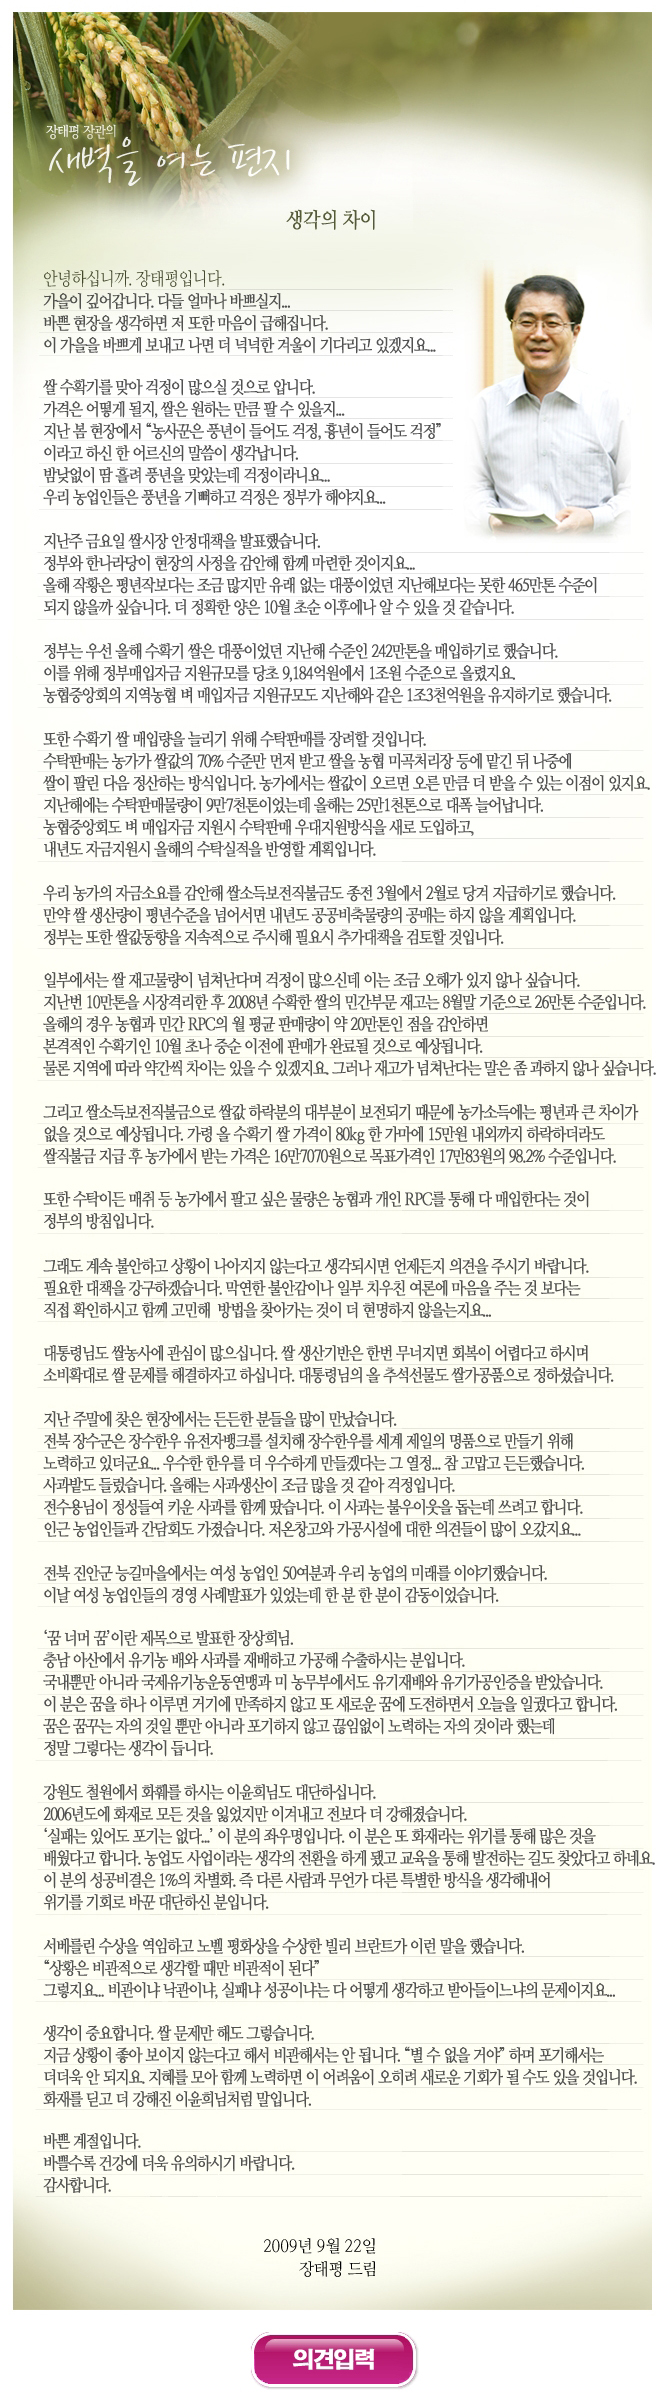 장태평 장관의
새벽을 여는 편지
생각의 차이
안녕하십니까. 장태평입니다.
가을이 깊어갑니다. 다들 얼마나 바쁘실지...
바쁜 현장을 생각하면 저 또한 마음이 급해집니다.
이 가을을 바쁘게 보내고 나면 더 넉넉한 겨울이 기다리고 있겠지요...
쌀 수확기를 맞아 걱정이 많으실 것으로 압니다.
가격은 어떻게 될지, 쌀은 원하는 만큼 팔 수 있을지...
지난 봄 현장에서 “농사꾼은 풍년이 들어도 걱정, 흉년이 들어도 걱정”
이라고 하신 한 어르신의 말씀이 생각납니다.
밤낮없이 땀 흘려 풍년을 맞았는데 걱정이라니요...
우리 농업인들은 풍년을 기뻐하고 걱정은 정부가 해야지요...
지난주 금요일 쌀시장 안정대책을 발표했습니다.
정부와 한나라당이 현장의 사정을 감안해 함께 마련한 것이지요...
올해 작황은 평년작보다는 조금 많지만 유래 없는 대풍이었던 지난해보다는 못한 465만톤 수준이
되지 않을까 싶습니다. 더 정확한 양은 10월 초순 이후에나 알 수 있을 것 같습니다.
정부는 우선 올해 수확기 쌀은 대풍이었던 지난해 수준인 242만톤을 매입하기로 했습니다.
이를 위해 정부매입자금 지원규모를 당초 9,184억원에서 1조원 수준으로 올렸지요.
농협중앙회의 지역농협 벼 매입자금 지원규모도 지난해와 같은 1조3천억원을 유지하기로 했습니다.
또한 수확기 쌀 매입량을 늘리기 위해 수탁판매를 장려할 것입니다.
수탁판매는 농가가 쌀값의 70% 수준만 먼저 받고 쌀을 농협 미곡처리장 등에 맡긴 뒤 나중에
쌀이 팔린 다음 정산하는 방식입니다. 농가에서는 쌀값이 오르면 오른 만큼 더 받을 수 있는 이점이 있지요.
지난해에는 수탁판매물량이 9만7천톤이었는데 올해는 25만1천톤으로 대폭 늘어납니다.
농협중앙회도 벼 매입자금 지원시 수탁판매 우대지원방식을 새로 도입하고,
내년도 자금지원시 올해의 수탁실적을 반영할 계획입니다.
우리 농가의 자금소요를 감안해 쌀소득보전직불금도 종전 3월에서 2월로 당겨 지급하기로 했습니다.
만약 쌀 생산량이 평년수준을 넘어서면 내년도 공공비축물량의 공매는 하지 않을 계획입니다.
정부는 또한 쌀값동향을 지속적으로 주시해 필요시 추가대책을 검토할 것입니다.
일부에서는 쌀 재고물량이 넘쳐난다며 걱정이 많으신데 이는 조금 오해가 있지 않나 싶습니다.
지난번 10만톤을 시장격리한 후 2008년 수확한 쌀의 민간부문 재고는 8월말 기준으로 26만톤 수준입니다.
올해의 경우 농협과 민간 RPC의 월 평균 판매량이 약 20만톤인 점을 감안하면
본격적인 수확기인 10월 초나 중순 이전에 판매가 완료될 것으로 예상됩니다.
물론 지역에 따라 약간씩 차이는 있을 수 있겠지요. 그러나 재고가 넘쳐난다는 말은 좀 과하지 않나 싶습니다.
그리고 쌀소득보전직불금으로 쌀값 하락분의 대부분이 보전되기 때문에 농가소득에는 평년과 큰 차이가
없을 것으로 예상됩니다. 가령 올 수확기 쌀 가격이 80kg 한 가마에 15만원 내외까지 하락하더라도
쌀직불금 지급 후 농가에서 받는 가격은 16만7070원으로 목표가격인 17만83원의 98.2% 수준입니다.
또한 수탁이든 매취 등 농가에서 팔고 싶은 물량은 농협과 개인 RPC를 통해 다 매입한다는 것이
정부의 방침입니다.
그래도 계속 불안하고 상황이 나아지지 않는다고 생각되시면 언제든지 의견을 주시기 바랍니다.
필요한 대책을 강구하겠습니다. 막연한 불안감이나 일부 치우친 여론에 마음을 주는 것 보다는
직접 확인하시고 함께 고민해 방법을 찾아가는 것이 더 현명하지 않을는지요...
대통령님도 쌀농사에 관심이 많으십니다. 쌀 생산기반은 한번 무너지면 회복이 어렵다고 하시며
소비확대로 쌀 문제를 해결하자고 하십니다. 대통령님의 올 추석선물도 쌀가공품으로 정하셨습니다.
지난 주말에 찾은 현장에서는 든든한 분들을 많이 만났습니다.
전북 장수군은 장수한우 유전자뱅크를 설치해 장수한우를 세계 제일의 명품으로 만들기 위해
노력하고 있더군요... 우수한 한우를 더 우수하게 만들겠다는 그 열정... 참 고맙고 든든했습니다.
사과밭도 들렀습니다. 올해는 사과생산이 조금 많을 것 같아 걱정입니다.
전수용님이 정성들여 키운 사과를 함께 땄습니다. 이 사과는 불우이웃을 돕는데 쓰려고 합니다.
인근 농업인들과 간담회도 가졌습니다. 저온창고와 가공시설에 대한 의견들이 많이 오갔지요...
전북 진안군 능길마을에서는 여성 농업인 50여분과 우리 농업의 미래를 이야기했습니다.
이날 여성 농업인들의 경영 사례발표가 있었는데 한 분 한 분이 감동이었습니다.
‘꿈 너머 꿈’이란 제목으로 발표한 장상희님.
충남 아산에서 유기농 배와 사과를 재배하고 가공해 수출하시는 분입니다.
국내뿐만 아니라 국제유기농운동연맹과 미 농무부에서도 유기재배와 유기가공인증을 받았습니다.
이 분은 꿈을 하나 이루면 거기에 만족하지 않고 또 새로운 꿈에 도전하면서 오늘을 일궜다고 합니다.
꿈은 꿈꾸는 자의 것일 뿐만 아니라 포기하지 않고 끊임없이 노력하는 자의 것이라 했는데
정말 그렇다는 생각이 듭니다.
강원도 철원에서 화훼를 하시는 이윤희님도 대단하십니다.
2006년도에 화재로 모든 것을 잃었지만 이겨내고 전보다 더 강해졌습니다.
‘실패는 있어도 포기는 없다...’ 이 분의 좌우명입니다. 이 분은 또 화재라는 위기를 통해 많은 것을
배웠다고 합니다. 농업도 사업이라는 생각의 전환을 하게 됐고 교육을 통해 발전하는 길도 찾았다고 하네요.
이 분의 성공비결은 1%의 차별화. 즉 다른 사람과 무언가 다른 특별한 방식을 생각해내어
위기를 기회로 바꾼 대단하신 분입니다.
서베를린 수상을 역임하고 노벨 평화상을 수상한 빌리 브란트가 이런 말을 했습니다.
“상황은 비관적으로 생각할 때만 비관적이 된다”
그렇지요... 비관이냐 낙관이냐, 실패냐 성공이냐는 다 어떻게 생각하고 받아들이느냐의 문제이지요...
생각이 중요합니다. 쌀 문제만 해도 그렇습니다.
지금 상황이 좋아 보이지 않는다고 해서 비관해서는 안 됩니다. “별 수 없을 거야” 하며 포기해서는
더더욱 안 되지요. 지혜를 모아 함께 노력하면 이 어려움이 오히려 새로운 기회가 될 수도 있을 것입니다.
화재를 딛고 더 강해진 이윤희님처럼 말입니다.
바쁜 계절입니다.
바쁠수록 건강에 더욱 유의하시기 바랍니다.
감사합니다.
2009년 9월 22일
장태평 드림
의견입력